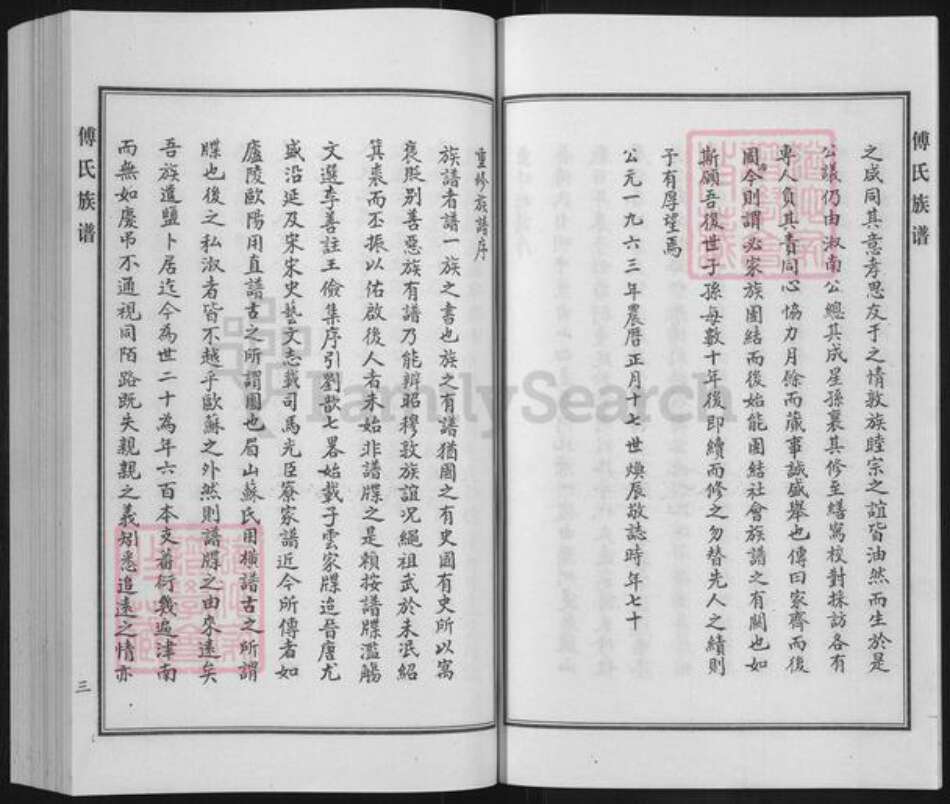 傅氏族谱
之感同其意孝思友于之情敦族睦宗之誼皆油然而生於是
公議仍由淑南公總其成星孫襄其修至繕寫校對採訪各有
專人負其責同心協力月餘而蕆事誠盛舉也傳曰家齊而後
國今則謂必家族團結而後始能團結社會族譜之有關也如
斯願吾後世子孫每數十年後即續而修之勿替先人之續則
予有厚望焉
公元一九六三年農曆正月十七世煥辰敬誌時年七十
重修族譜序
族譜者譜一族之書也族之有譜猶國之有史國有史所以寓
褒貶別善惡族有譜乃能辨昭穆敦族誼况繩祖武於未泯紹
箕裘而丕振以佑啟後人者未始非譜牒之是賴按譜牒濫觴
文選李善註王儉集序引劉歆七畧始載子雲家牒迨晉唐尤
盛沿延及宋宋史藝文志載司馬光臣寮家譜近今所傳者如
廬陵歐陽用直譜古之所謂圖也眉山蘇氏用橫譜古之所謂
牒也後之私淑者皆不越乎歐蘇之外然則譜牒之由來遠矣
吾族遷鹽卜居迄今為世二十為年六百本支蕃衍幾遍津南
而無如慶弔不通視同陌路既失親親之義矧悉追遠之情亦
傅氏族谱
三
FamilySearch